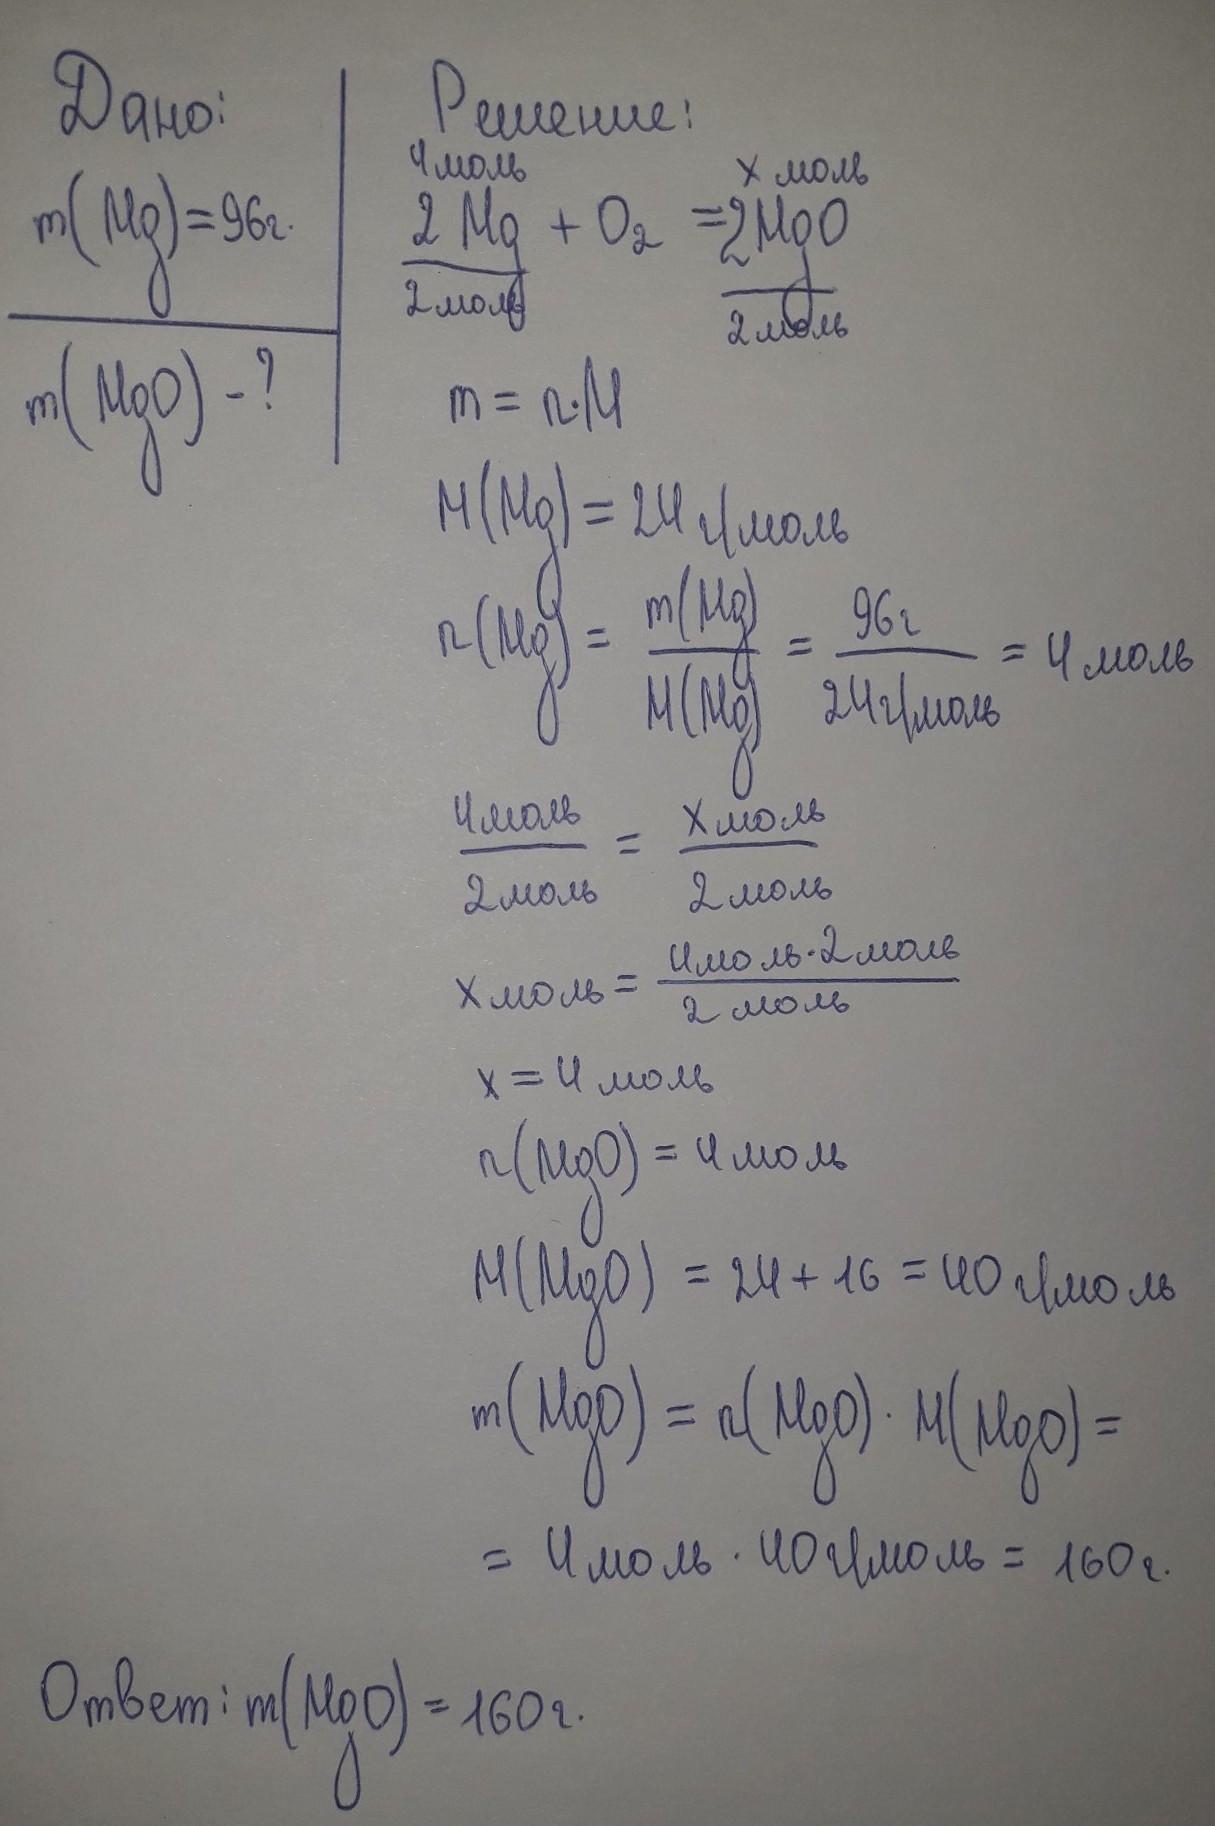 Дано:
m(Mg)=96г.
m(MgO) - ?
Решение:
4моль x моль
2Mg + O₂ = 2MgO
2моль 2моль
m = n·M
M(Mg) = 24 г/моль
n(Mg) = m(Mg)/M(Mg) = 96г/24г/моль = 4 моль
4моль/2моль = x моль/2моль
x моль = 4моль·2моль/2 моль
x = 4 моль
n(MgO) = 4моль
M(MgO) = 24 + 16 = 40 г/моль
m(MgO) = n(MgO) · M(MgO) =
= 4моль · 40г/моль = 160г.
Ответ: m(MgO) = 160г.